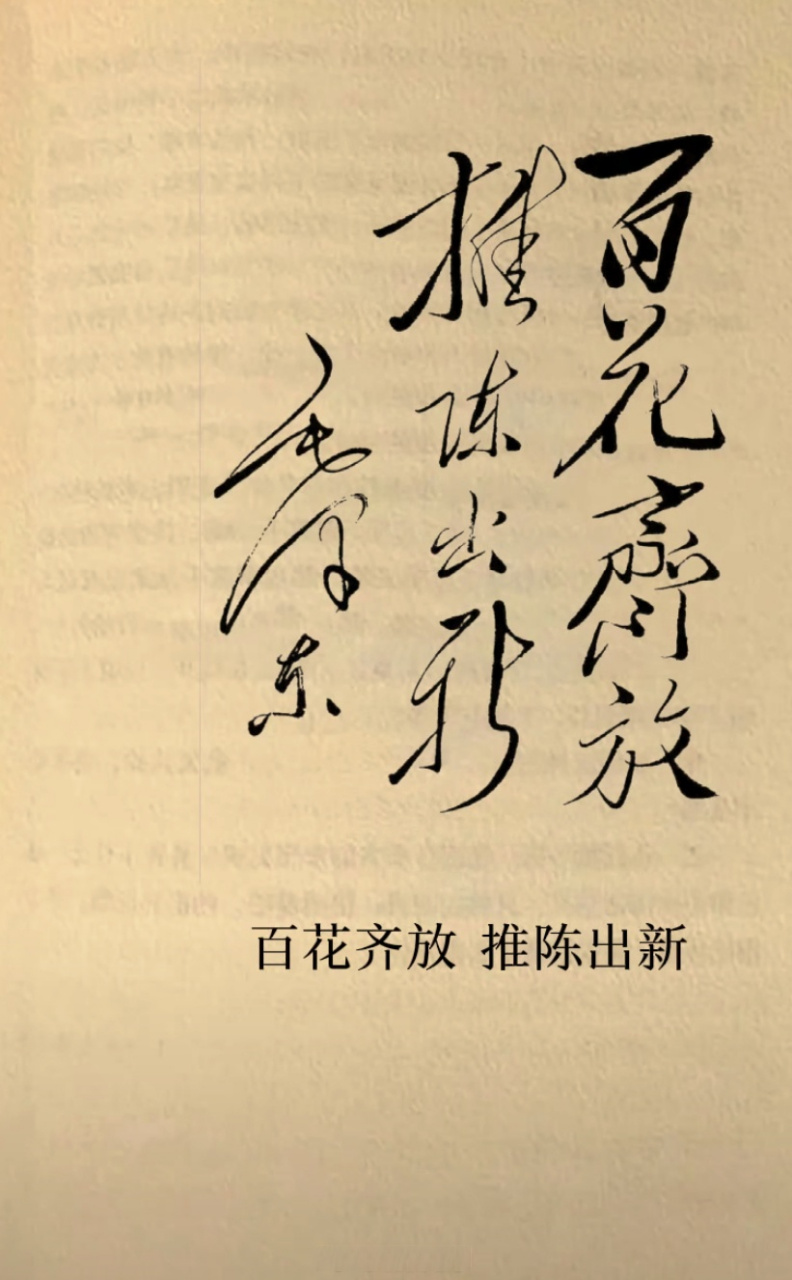 百花齊放
推陳出新
毛泽东
百花齐放 推陈出新